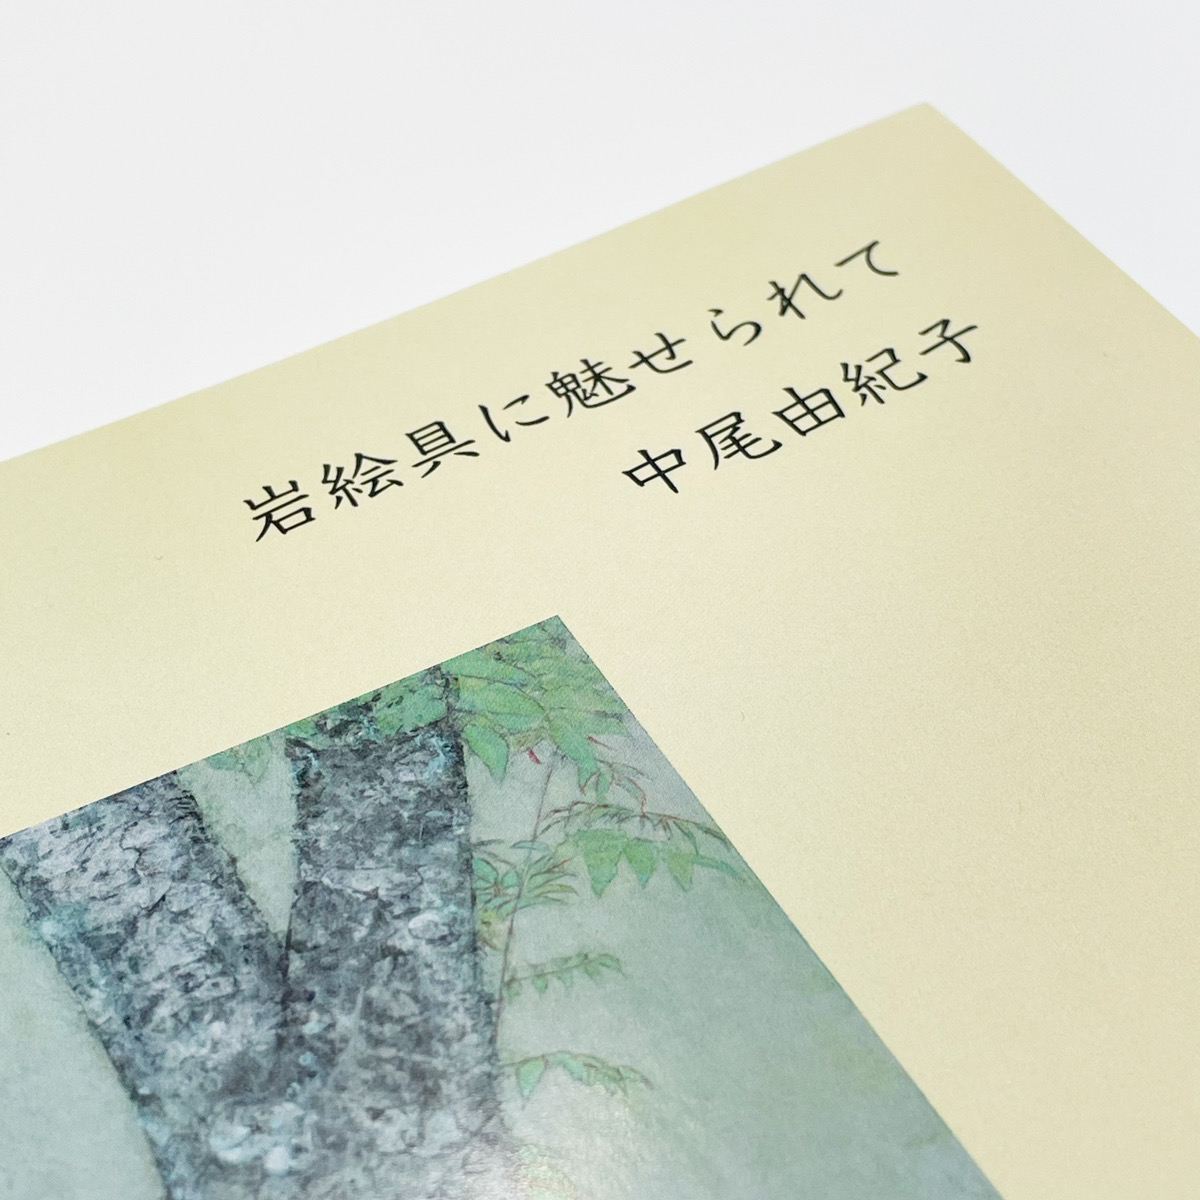 岩絵具に魅せられて
中尾由紀子